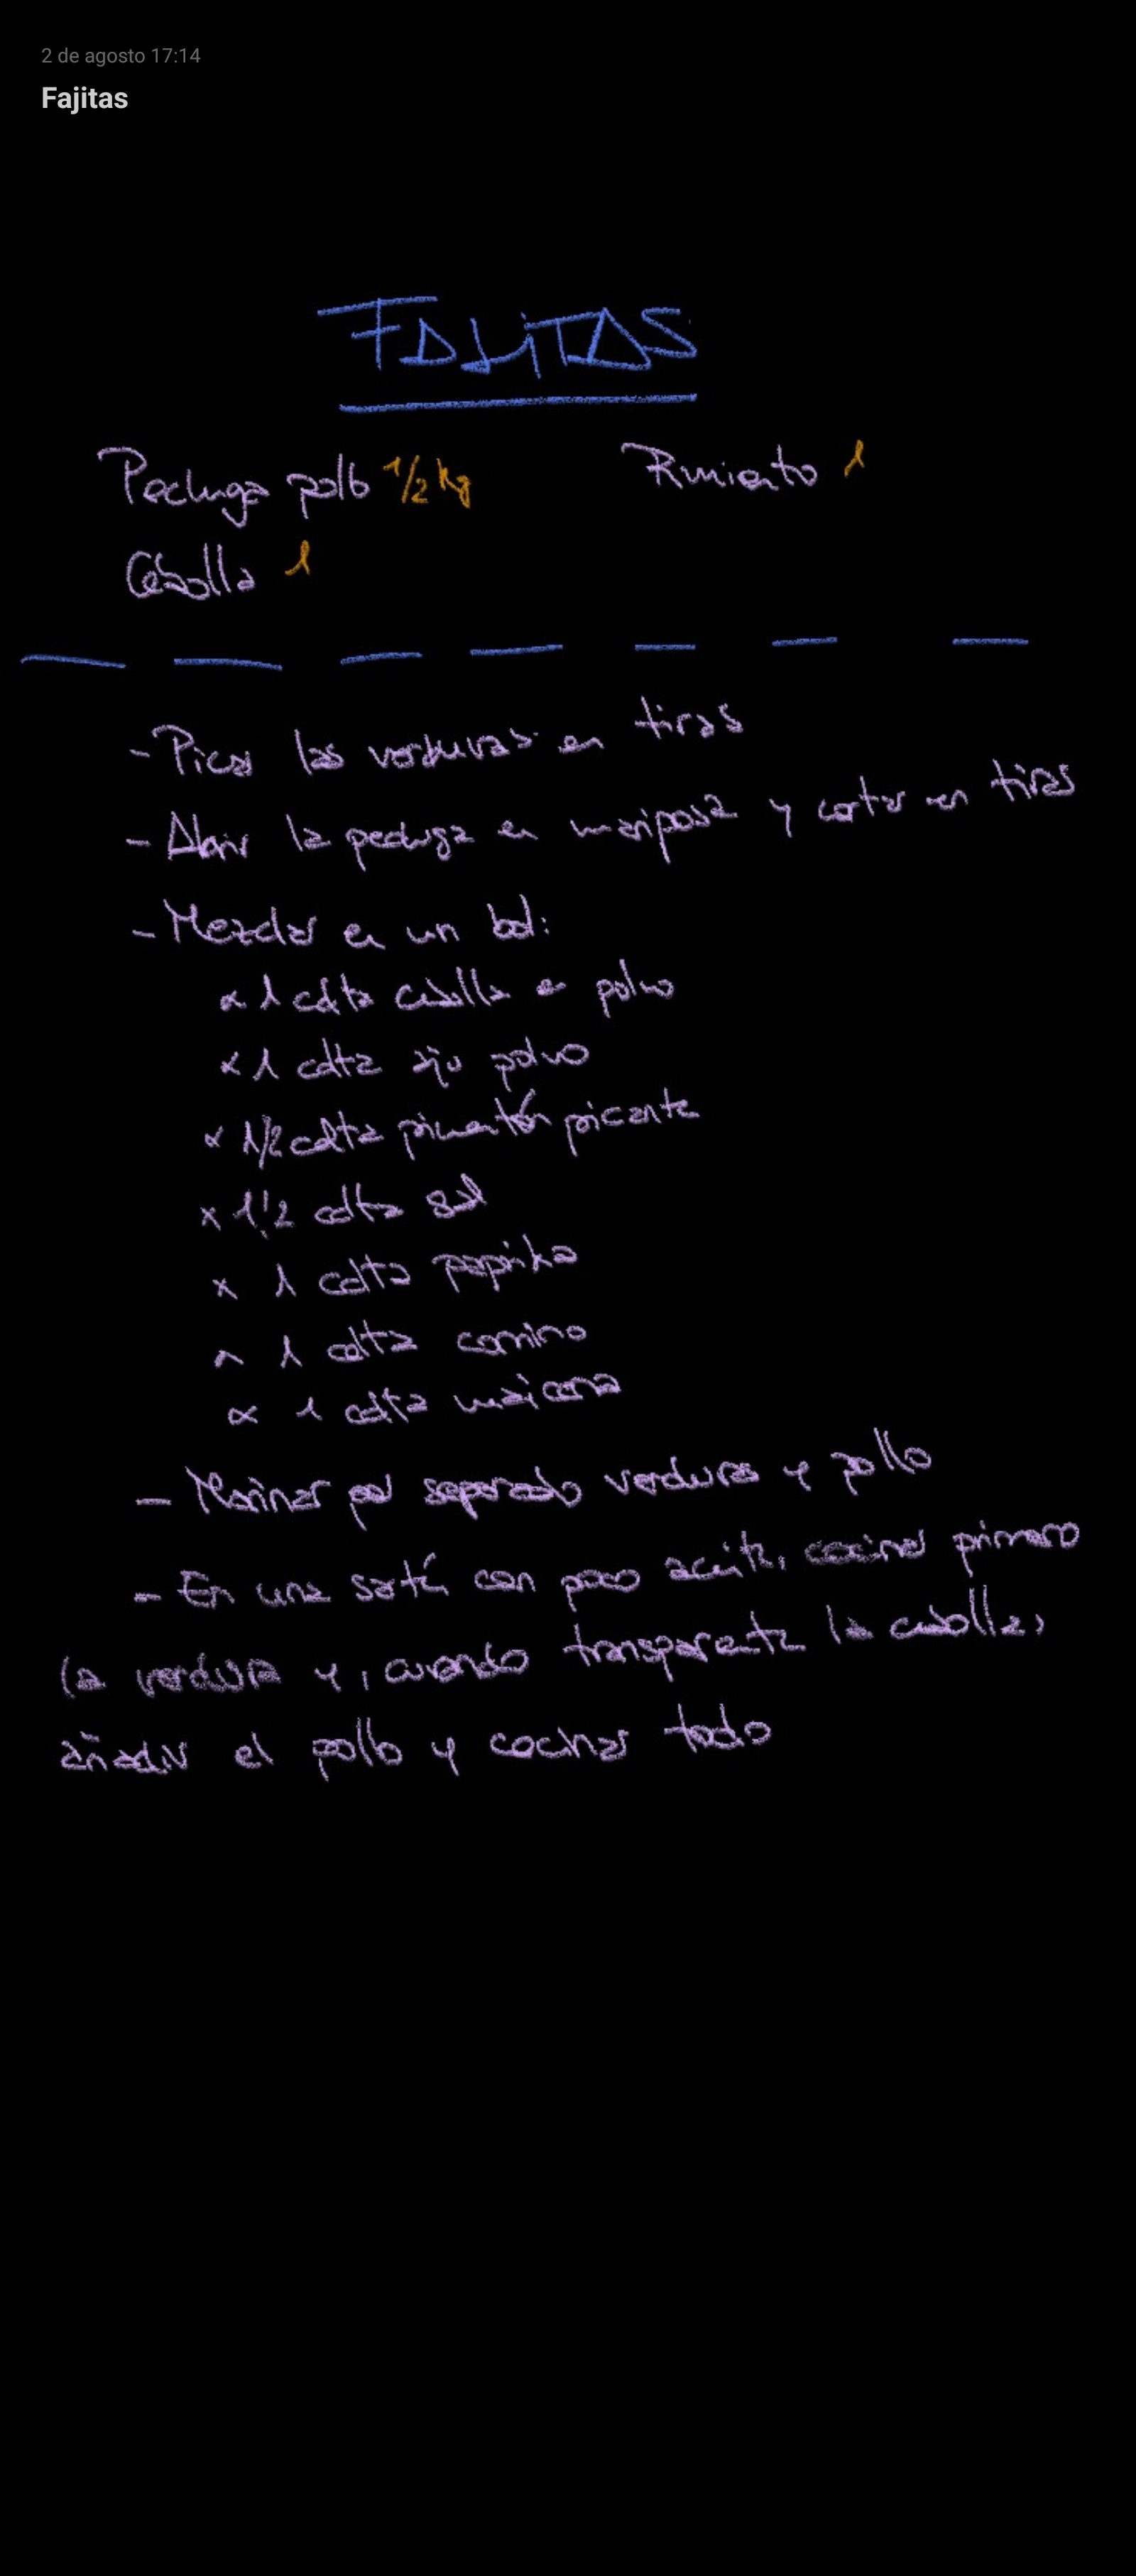 2 de agosto 17:14
Fajitas
FAJITAS
Pechuga pollo 1/2 kg Pimiento 1
Cebolla 1
- Picar las verduras en tiras
- Abrir la pechuga en mariposa y cortar en tiras
- Mezclar en un bol:
x 1 cdta cebolla en polvo
x 1 cdta ajo polvo
x 1/2 cdta pimentón picante
x 1/2 cdta sal
x 1 cdta paprika
x 1 cdta comino
x 1 cdta maicena
- Marinar por separado verduras y pollo
- En una sartén con poco aceite, cocinar primero
la verdura y, cuando transparente la cebolla,
añadir el pollo y cocinar todo